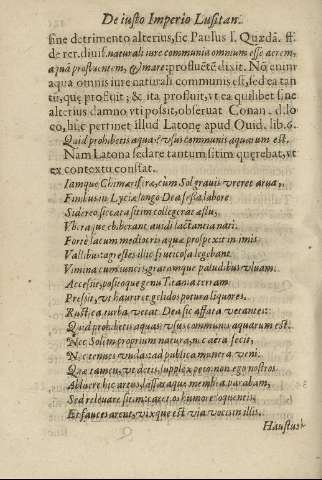 De iusto Imperio Lusitan.
sine detrimento alterius, sic Paulus l. Quædã. ff.
de rer. diuis. naturali iure communia omnium esse aerem,
aquã profluentem, & mare: profluẽtẽ dixit. Nõ enim
aqua omnis iure naturali communis est, sed ea tan
tũ, quę profluit; & ita profluit, vt ea quilibet sine
alterius damno vti possit, obseruat Conan. d. lo
co, hùc pertinet illud Latonę apud Ouid. lib. 6.
Quid prohibetis aquas? vsus communis aquarum est.
Nam Latona sedare tantum sitim quęrebat, vt
ex contextu constat.
Iamque Chimæriferæ, cum Sol grauis vreret arua,
Finibus in Lyciæ longo Dea fessa labore
Sidereo siccata sitim collegerat æstu,
Vbera que ebiberant auidi lactantia nati.
Fortè lacum mediocris aquæ prospexit in imis
Vallibus: agrestes illic fruticosa legebant
Vimina cum iuncis, gratamque paludibus vluam.
Accessit, positoque genu Titania terram
Pressit, vt hauriret gelidos potura liquores.
Rustica turba vetat Dea sic affata vetantes:
Quid prohibetis aquas? vsus communis aquarum est.
Nec Solem proprium natura, nec aera fecit,
Nec tenues vndas: ad publica munera veni.
Quæ tamen, vt detis, supplex peto: non ego nostros
Abluere hic artus, lassataque membra parabam,
Sed releuare sitim: caret os humore loquentis,
Et fauces arent, vixque est via vocis in illis.
Haustus